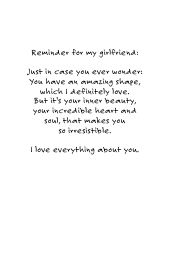 Reminder for my girlfriend:
Just in case you ever wonder:
You have an amazing shape,
which I definitely love.
But it's your inner beauty,
your incredible heart and
soul, that makes you
so irresistible.
I love everything about you.